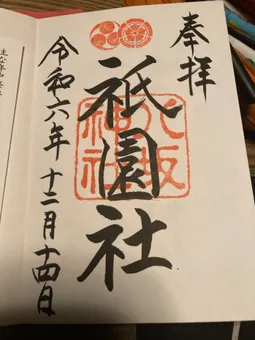 奉拝
祇園社
八坂神社
令和六年十二月十四日